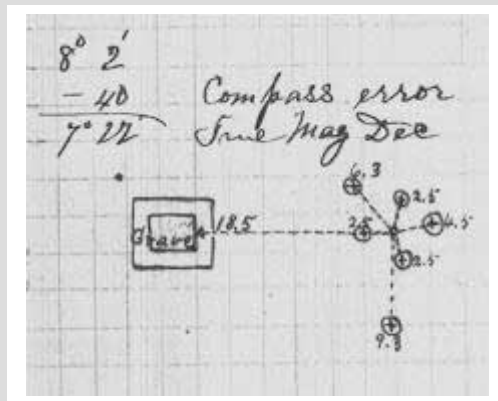 8° 2'
- 40
7° 22
Compass error
True Mag Dec
6.3
2.5
Grave
18.5
2.5
4.5
2.5
9.3